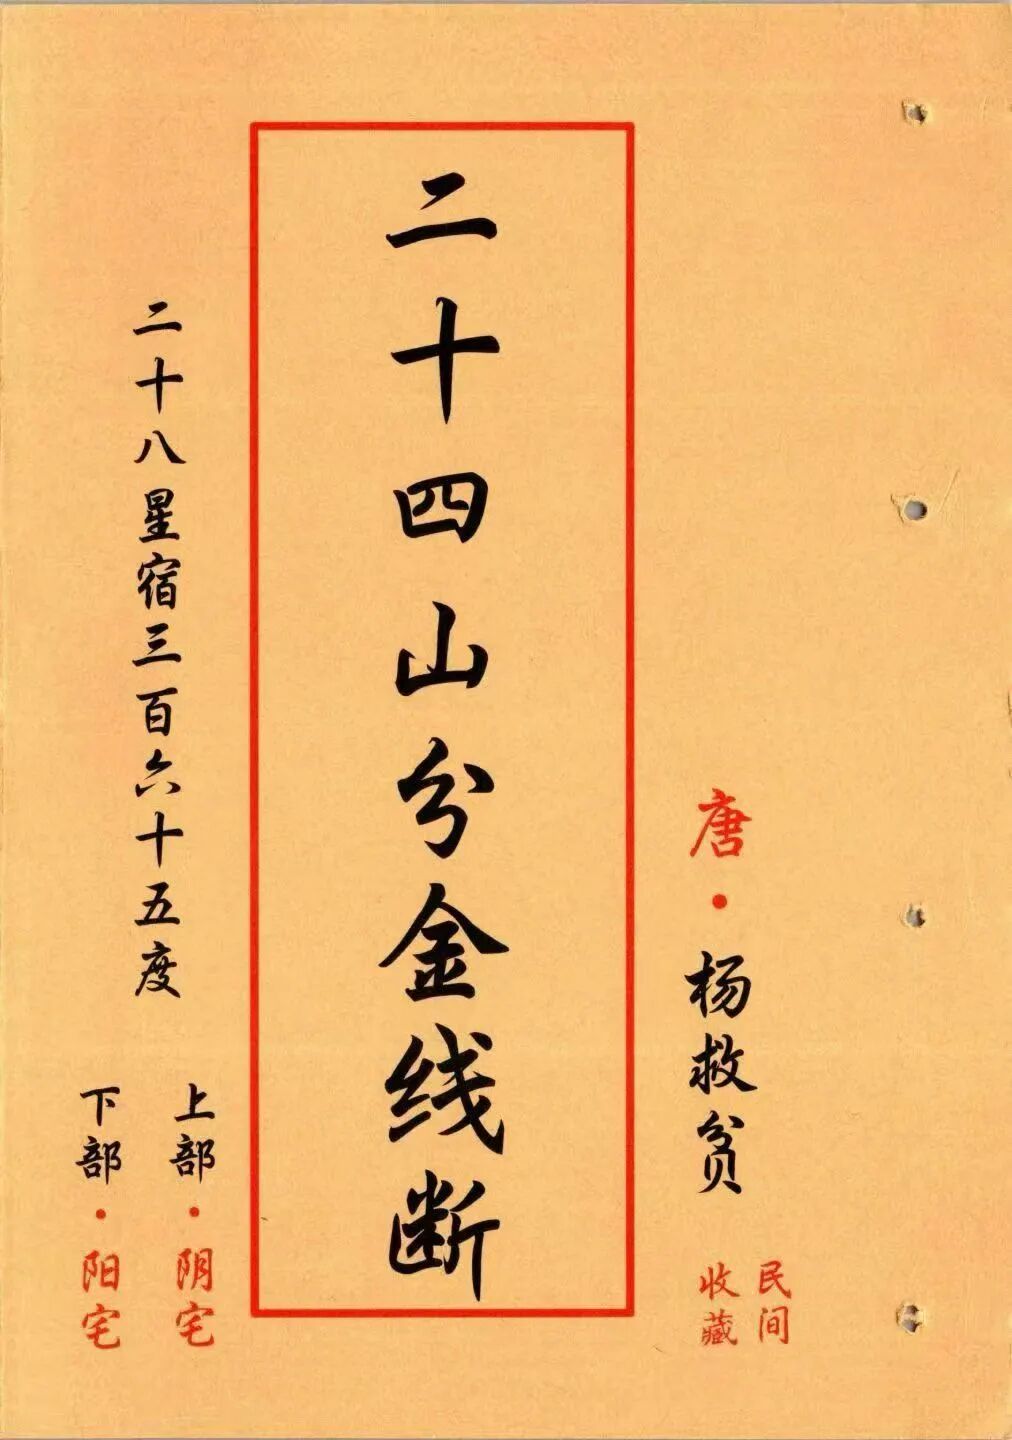 唐·杨救贫
民间
收藏
二十四山分金线断
二十八星宿三百六十五度
上部·阴宅
下部·阳宅